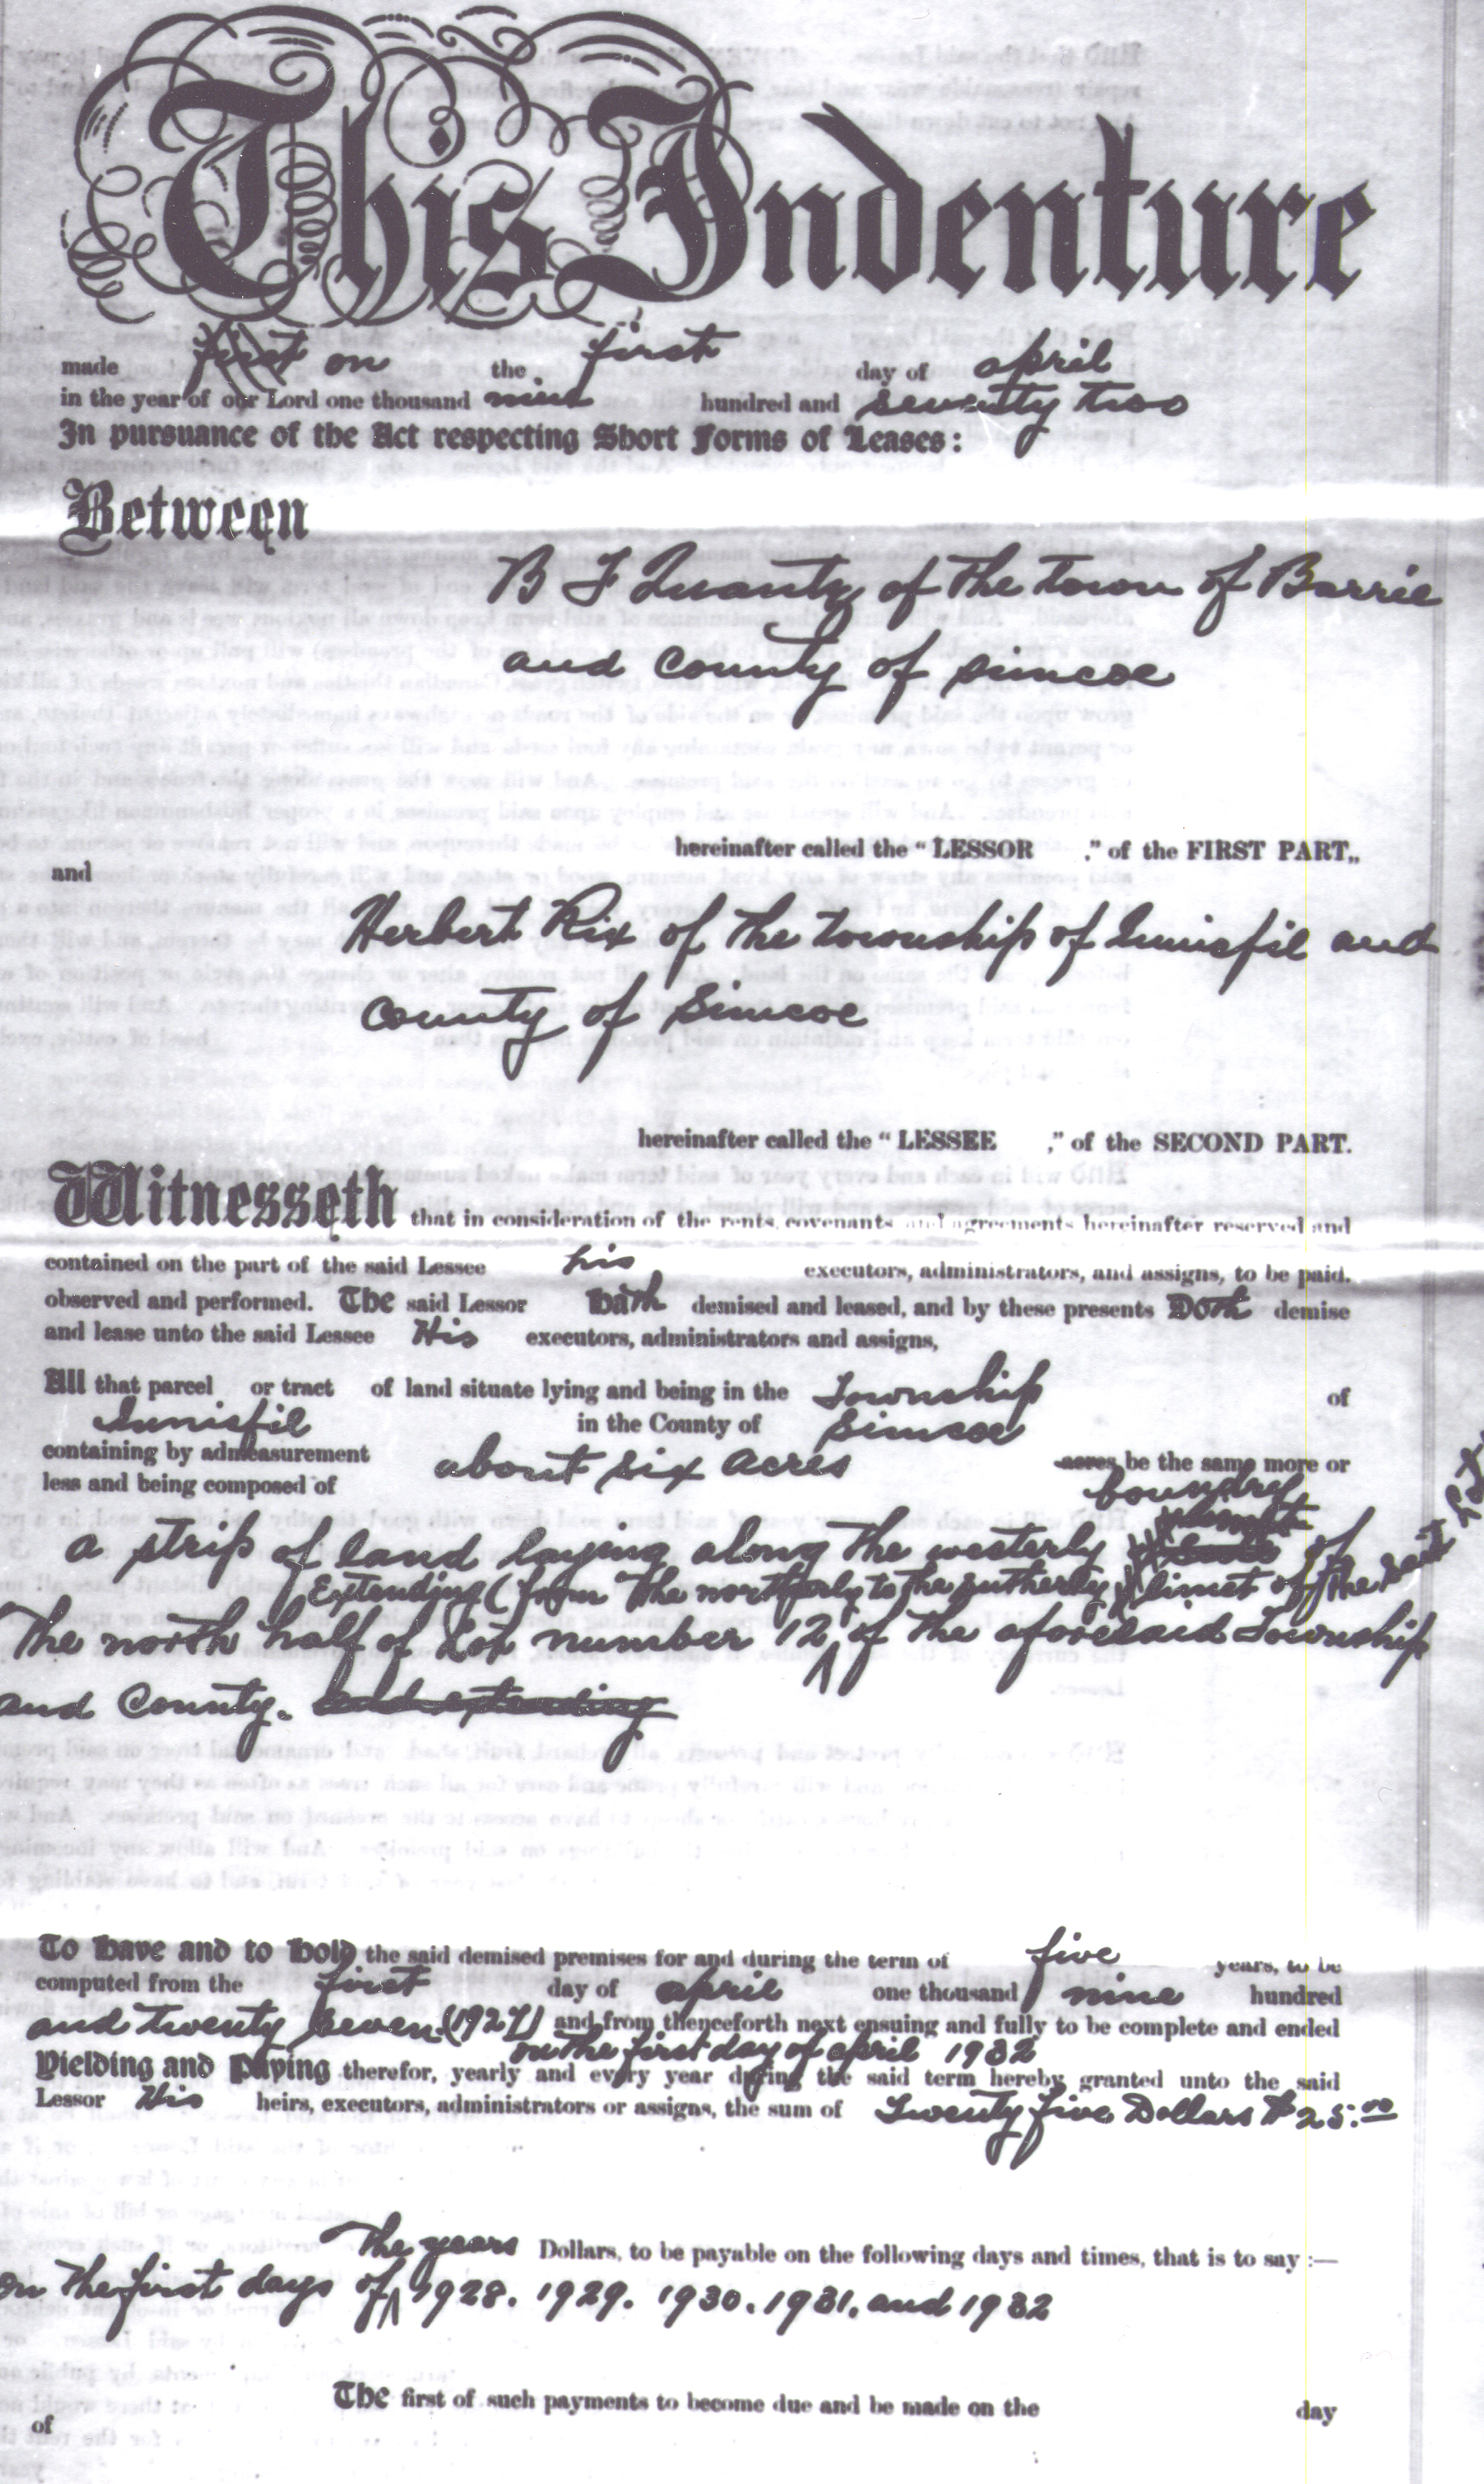 This Indenture
made first on the first day of april
in the year of our Lord one thousand nine hundred and seventy two
In pursuance of the Act respecting Short Forms of Leases:
Between
B F Quantz of the town of Barrie
and County of Simcoe
hereinafter called the "LESSOR ," of the FIRST PART,,
and
Herbert Rix of the township of Innisfil and
County of Simcoe
hereinafter called the "LESSEE ," of the SECOND PART.
Witnesseth that in consideration of the rents, covenants and agreements hereinafter reserved and
contained on the part of the said Lessee his executors, administrators, and assigns, to be paid.
observed and performed. The said Lessor Hath demised and leased, and by these presents Doth demise
and lease unto the said Lessee His executors, administrators and assigns,
All that parcel or tract of land situate lying and being in the Township of
Innisfil in the County of Simcoe
containing by admeasurement about six acres acres be the same more or
less and being composed of
boundry
a strip of land laying along the westerly of
Extending (from the northerly to the sutherly) limet of the said Lot
The north half of Lot number 12 of the aforesaid Township
and County. and extending
To have and to hold the said demised premises for and during the term of five years, to be
computed from the first day of april one thousand nine hundred
and twenty seven (1927) and from thenceforth next ensuing and fully to be complete and ended
on the first day of april 1932
Yielding and Paying therefor, yearly and every year during the said term hereby granted unto the said
Lessor His heirs, executors, administrators or assigns, the sum of Twenty five Dollars $25.00
The years Dollars, to be payable on the following days and times, that is to say :—
on the first days of 1928. 1929. 1930. 1931. and 1932
The first of such payments to become due and be made on the day
of